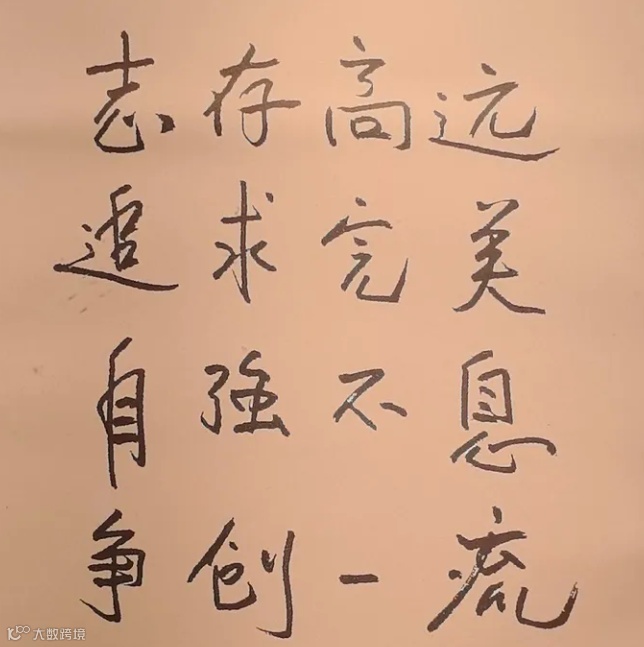 志存高远
追求完美
自强不息
争创一流
大数跨境